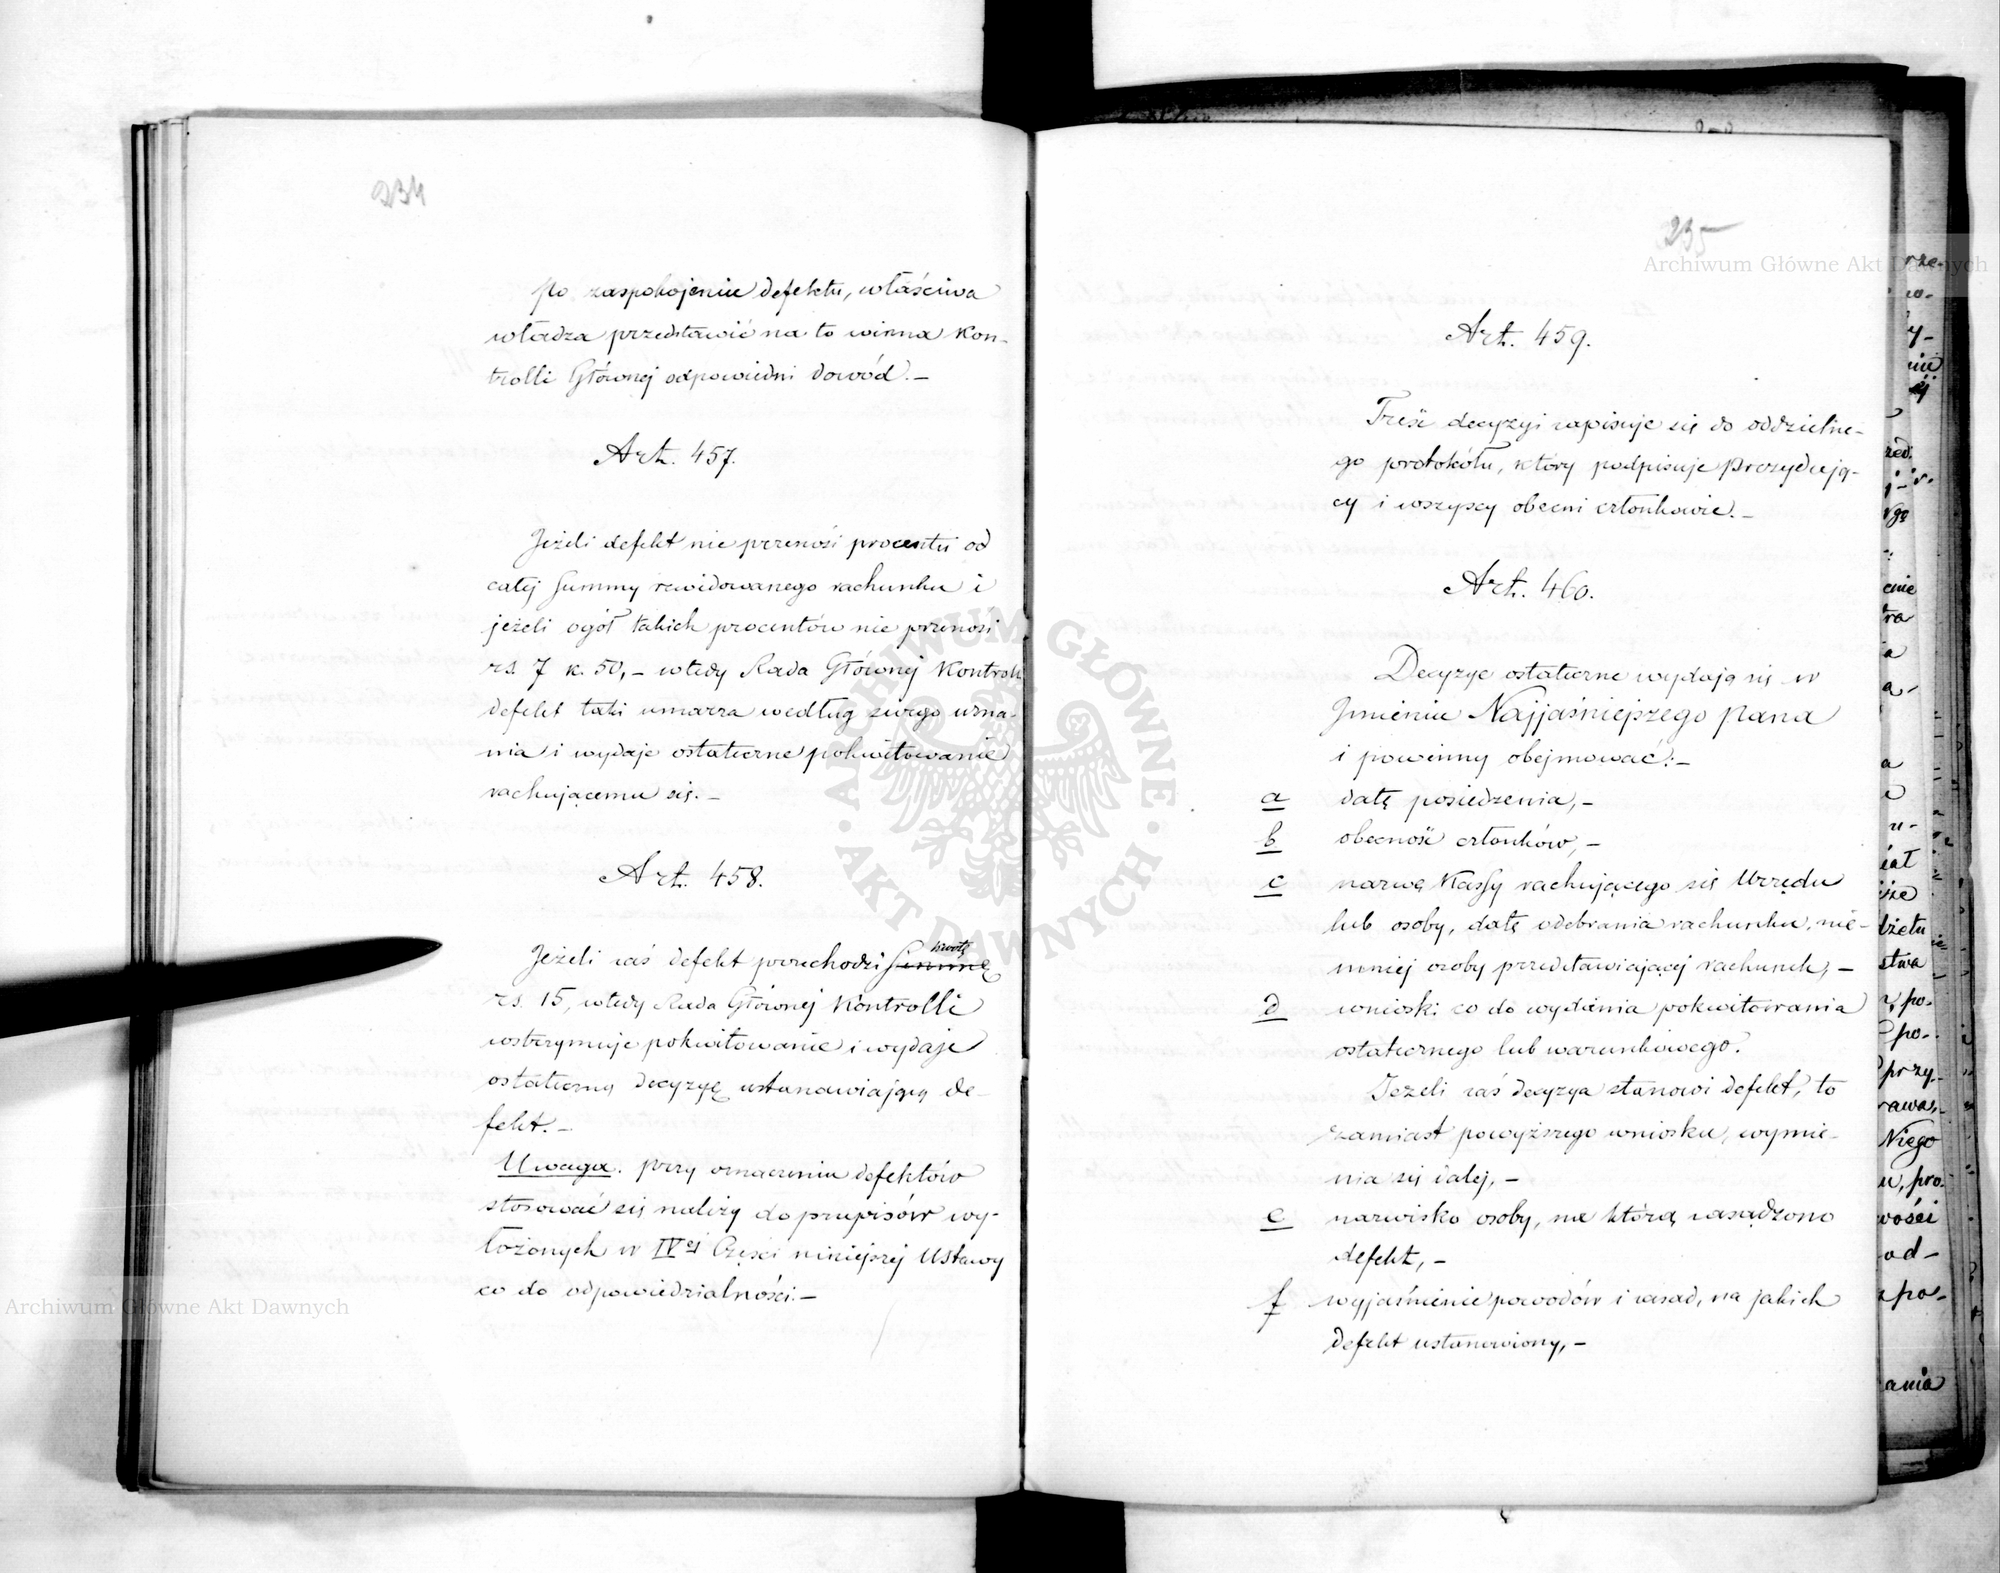 234
po zaspokojeniu defektu, właściwa
władza przedstawić na to winna Kon-
trolli Głównej odpowiedni dowód. –
Art. 457.
Jeżeli defekt nie przenosi procentu od
całej Summy rewidowanego rachunku i
jeżeli ogół takich procentów nie przenosi
rs. 7 k. 50, – wtedy Rada Głównej Kontroli
defekt taki umarza według swego uzna-
nia i wydaje ostateczne pokwitowanie
rachującemu się. –
Art. 458.
Jeżeli zaś defekt przechodzi Summę kwotę
rs. 15, wtedy Rada Głównej Kontrolli
wstrzymuje pokwitowanie i wydaje
ostateczną decyzyę ustanawiającą de-
fekt. –
Uwaga. przy oznaczeniu defektów
stosować się należy do przepisów wy-
łożonych w IVej Części niniejszej Ustawy
co do odpowiedzialności. –
235
Art. 459.
Treść decyzyi zapisuje się do oddzielne-
go protokółu, który podpisuje Prezydują-
cy i wszyscy obecni członkowie. –
Art. 460.
Decyzye ostateczne wydają się w
Imieniu Najjaśniejszego Pana
i powinny obejmować: –
a datę posiedzenia, –
b obecność członków, –
c nazwę Kassy rachującego się Urzędu
lub osoby, datę odebrania rachunku, nie-
mniej osoby przedstawiającej rachunek, –
d wnioski co do wydania pokwitowania
ostatecznego lub warunkowego.
Jeżeli zaś decyzya stanowi defekt, to
zamiast powyższego wniosku, wymie-
nia się dalej, –
e nazwisko osoby, na którą zasądzono
defekt, –
f wyjaśnienie powodów i zasad, na jakich
defekt ustanowiony, –
Archiwum Główne Akt Dawnych
Archiwum Główne Akt Dawnych
ARCHIWUM GŁÓWNE AKT DAWNYCH